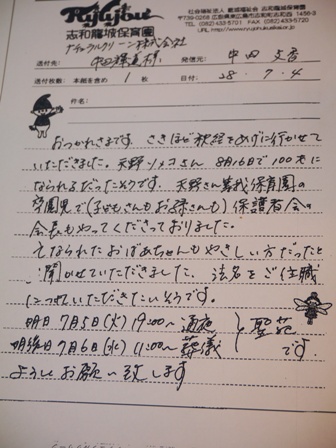 Ryujou
志和龍城保育園
社会福祉法人 龍城福祉会 志和龍城保育園
〒739-0269 広島県東広島市志和町志和堀
TEL (082)433-5701 FAX (082)433-5720
ナチュラルクリーン株式会社
送付先: 中田 様
発信元: 中田
送付枚数: 本紙を含め 1 枚
28.7.4
件名:
おつかれさまです。さきほど枕経をあげに行かせて
いただきました。天野ソメヨさん 8月16日で100才に
なられるだったそうです。天野さん 我保育園の
卒園児で(子どもさんもお孫さんも)保護者会の
会長もやってくださっておりました。
亡なられたおばあちゃんもやさしい方だったと
聞かせていただきました。法名をご住職
につけていただきたいそうです。
明日 7月5日(火) 19:00~ 通夜
明後日 7月6日(水) 11:00~ 葬儀
聖苑です。
よろしくお願い致します